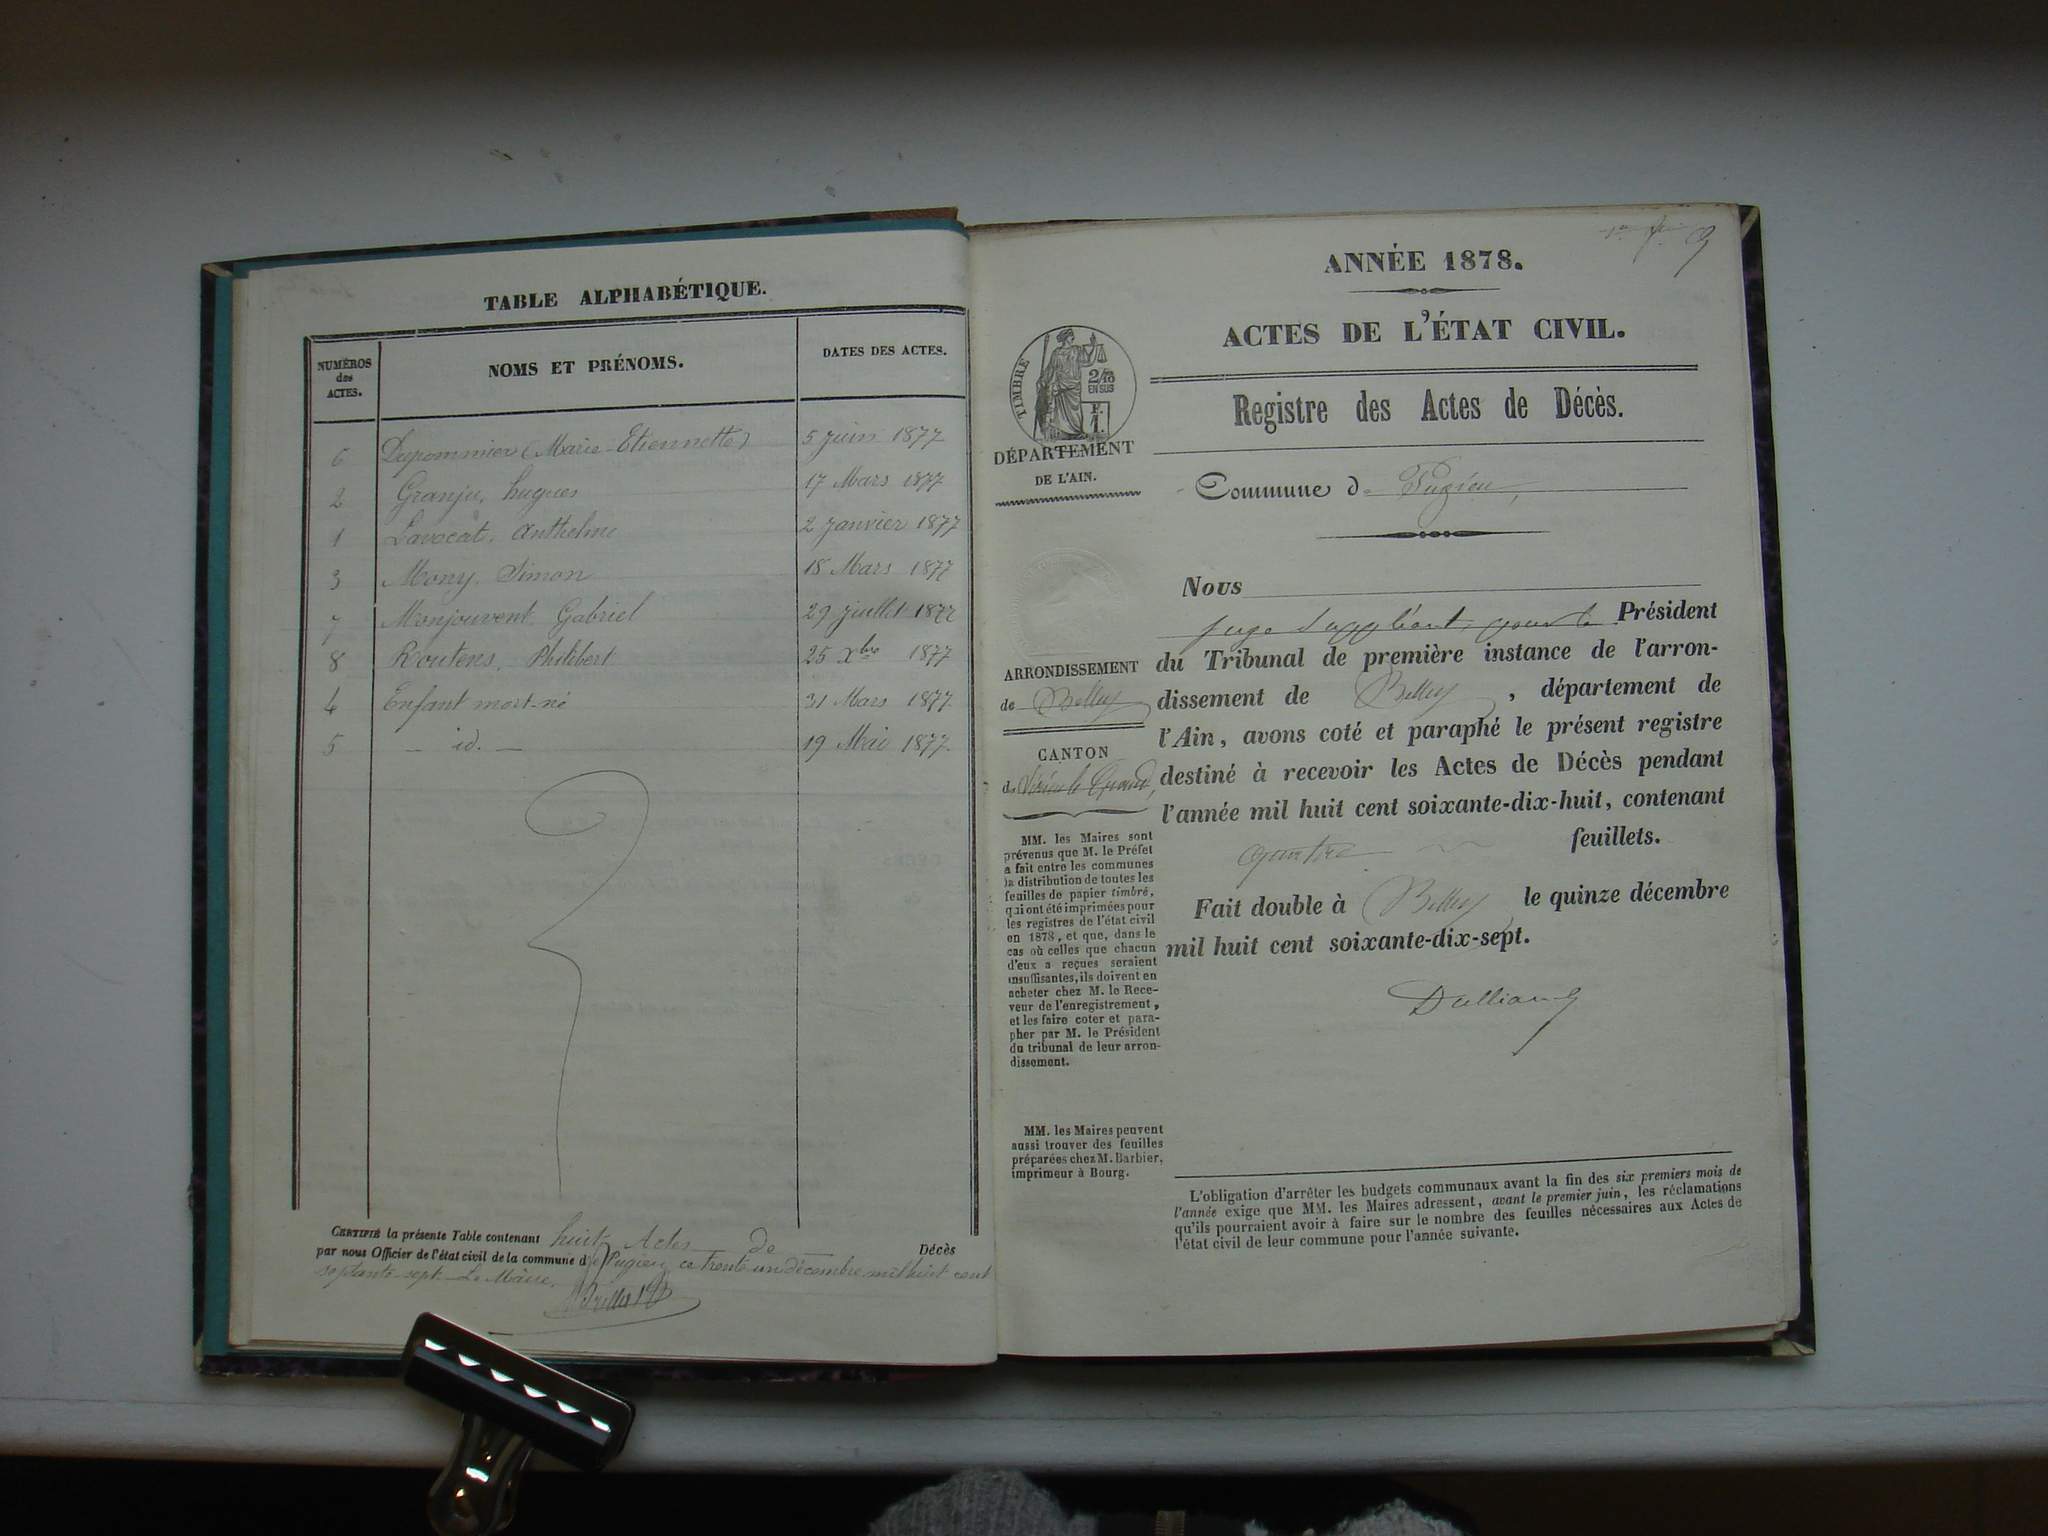 TABLE ALPHABÉTIQUE.
NUMÉROS
des
ACTES.
NOMS ET PRÉNOMS.
DATES DES ACTES.
6 Dupommier (Marie-Etiennette) 5 juin 1877
2 Granju, hugues 17 Mars 1877
1 Lavocat, Anthelme 2 janvier 1877
3 Mony, Simon 18 Mars 1877
7 Monjouvent, Gabriel 29 juillet 1877
8 Routens, Philibert 25 Xbre 1877
4 Enfant mort-né 31 Mars 1877
5 – id. – 19 Mai 1877
CERTIFIÉ la présente Table contenant huit Actes de Décès
par nous Officier de l'état civil de la commune de Pugieu, ce trente un décembre mil huit cent
septante-sept. Le Maire,
ANNÉE 1878.
ACTES DE L'ÉTAT CIVIL.
Registre des Actes de Décès.
Commune de Pugieu,
TIMBRE
2/10
EN SUS
F.
1.
DÉPARTEMENT
DE L'AIN.
ARRONDISSEMENT
de Belley
CANTON
de Virieu le Grand,
MM. les Maires sont
prévenus que M. le Préfet
a fait entre les communes
la distribution de toutes les
feuilles de papier timbré,
qui ont été imprimées pour
les registres de l'état civil
en 1878, et que, dans le
cas où celles que chacun
d'eux a reçues seraient
insuffisantes, ils doivent en
acheter chez M. le Rece-
veur de l'enregistrement,
et les faire coter et para-
pher par M. le Président
du tribunal de leur arron-
dissement.
MM. les Maires peuvent
aussi trouver des feuilles
préparées chez M. Barbier,
imprimeur à Bourg.
Nous
juge suppléant, pour le Président
du Tribunal de première instance de l'arron-
dissement de Belley, département de
l'Ain, avons coté et paraphé le présent registre
destiné à recevoir les Actes de Décès pendant
l'année mil huit cent soixante-dix-huit, contenant
quatre feuillets.
Fait double à Belley le quinze décembre
mil huit cent soixante-dix-sept.
L'obligation d'arrêter les budgets communaux avant la fin des six premiers mois de
l'année exige que MM. les Maires adressent, avant le premier juin, les réclamations
qu'ils pourraient avoir à faire sur le nombre des feuilles nécessaires aux Actes de
l'état civil de leur commune pour l'année suivante.